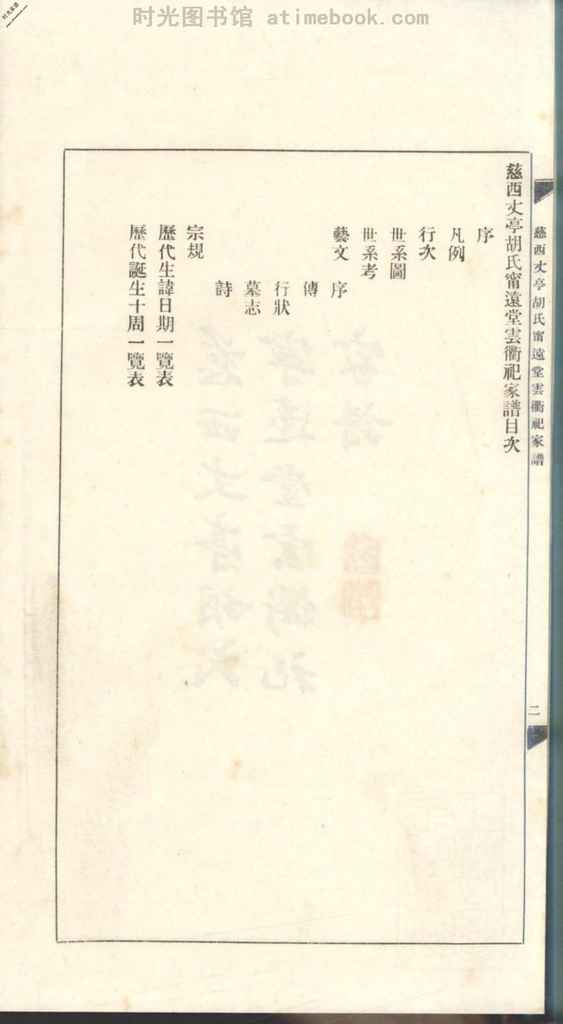 时光图书馆 atimebook.com
慈西丈亭胡氏甯遠堂雲衢祀家譜
二
慈西丈亭胡氏甯遠堂雲衢祀家譜目次
序
凡例
行次
世系圖
世系考
藝文 序
傳
行狀
墓志
詩
宗規
歷代生諱日期一覽表
歷代誕生十周一覽表